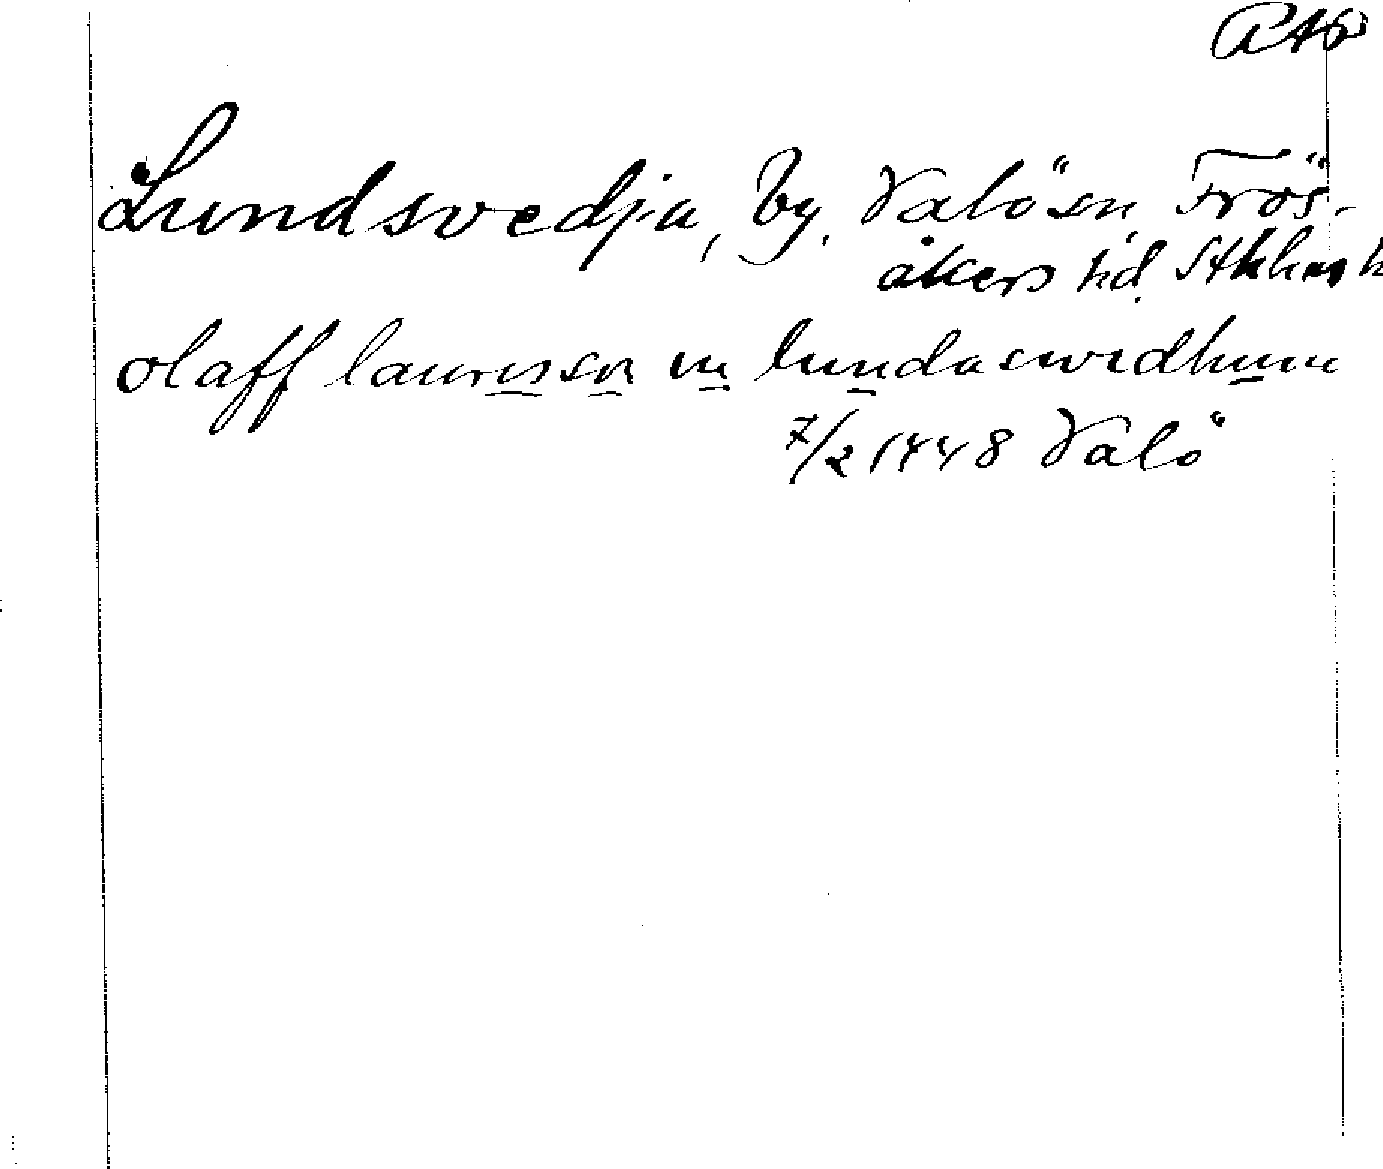 RAp
Lundsvedja, by, Valö sn, Frös-
åkers hd. Sthlms l
olaff laurisson in lundaswedhum
7/2 1448 Valö